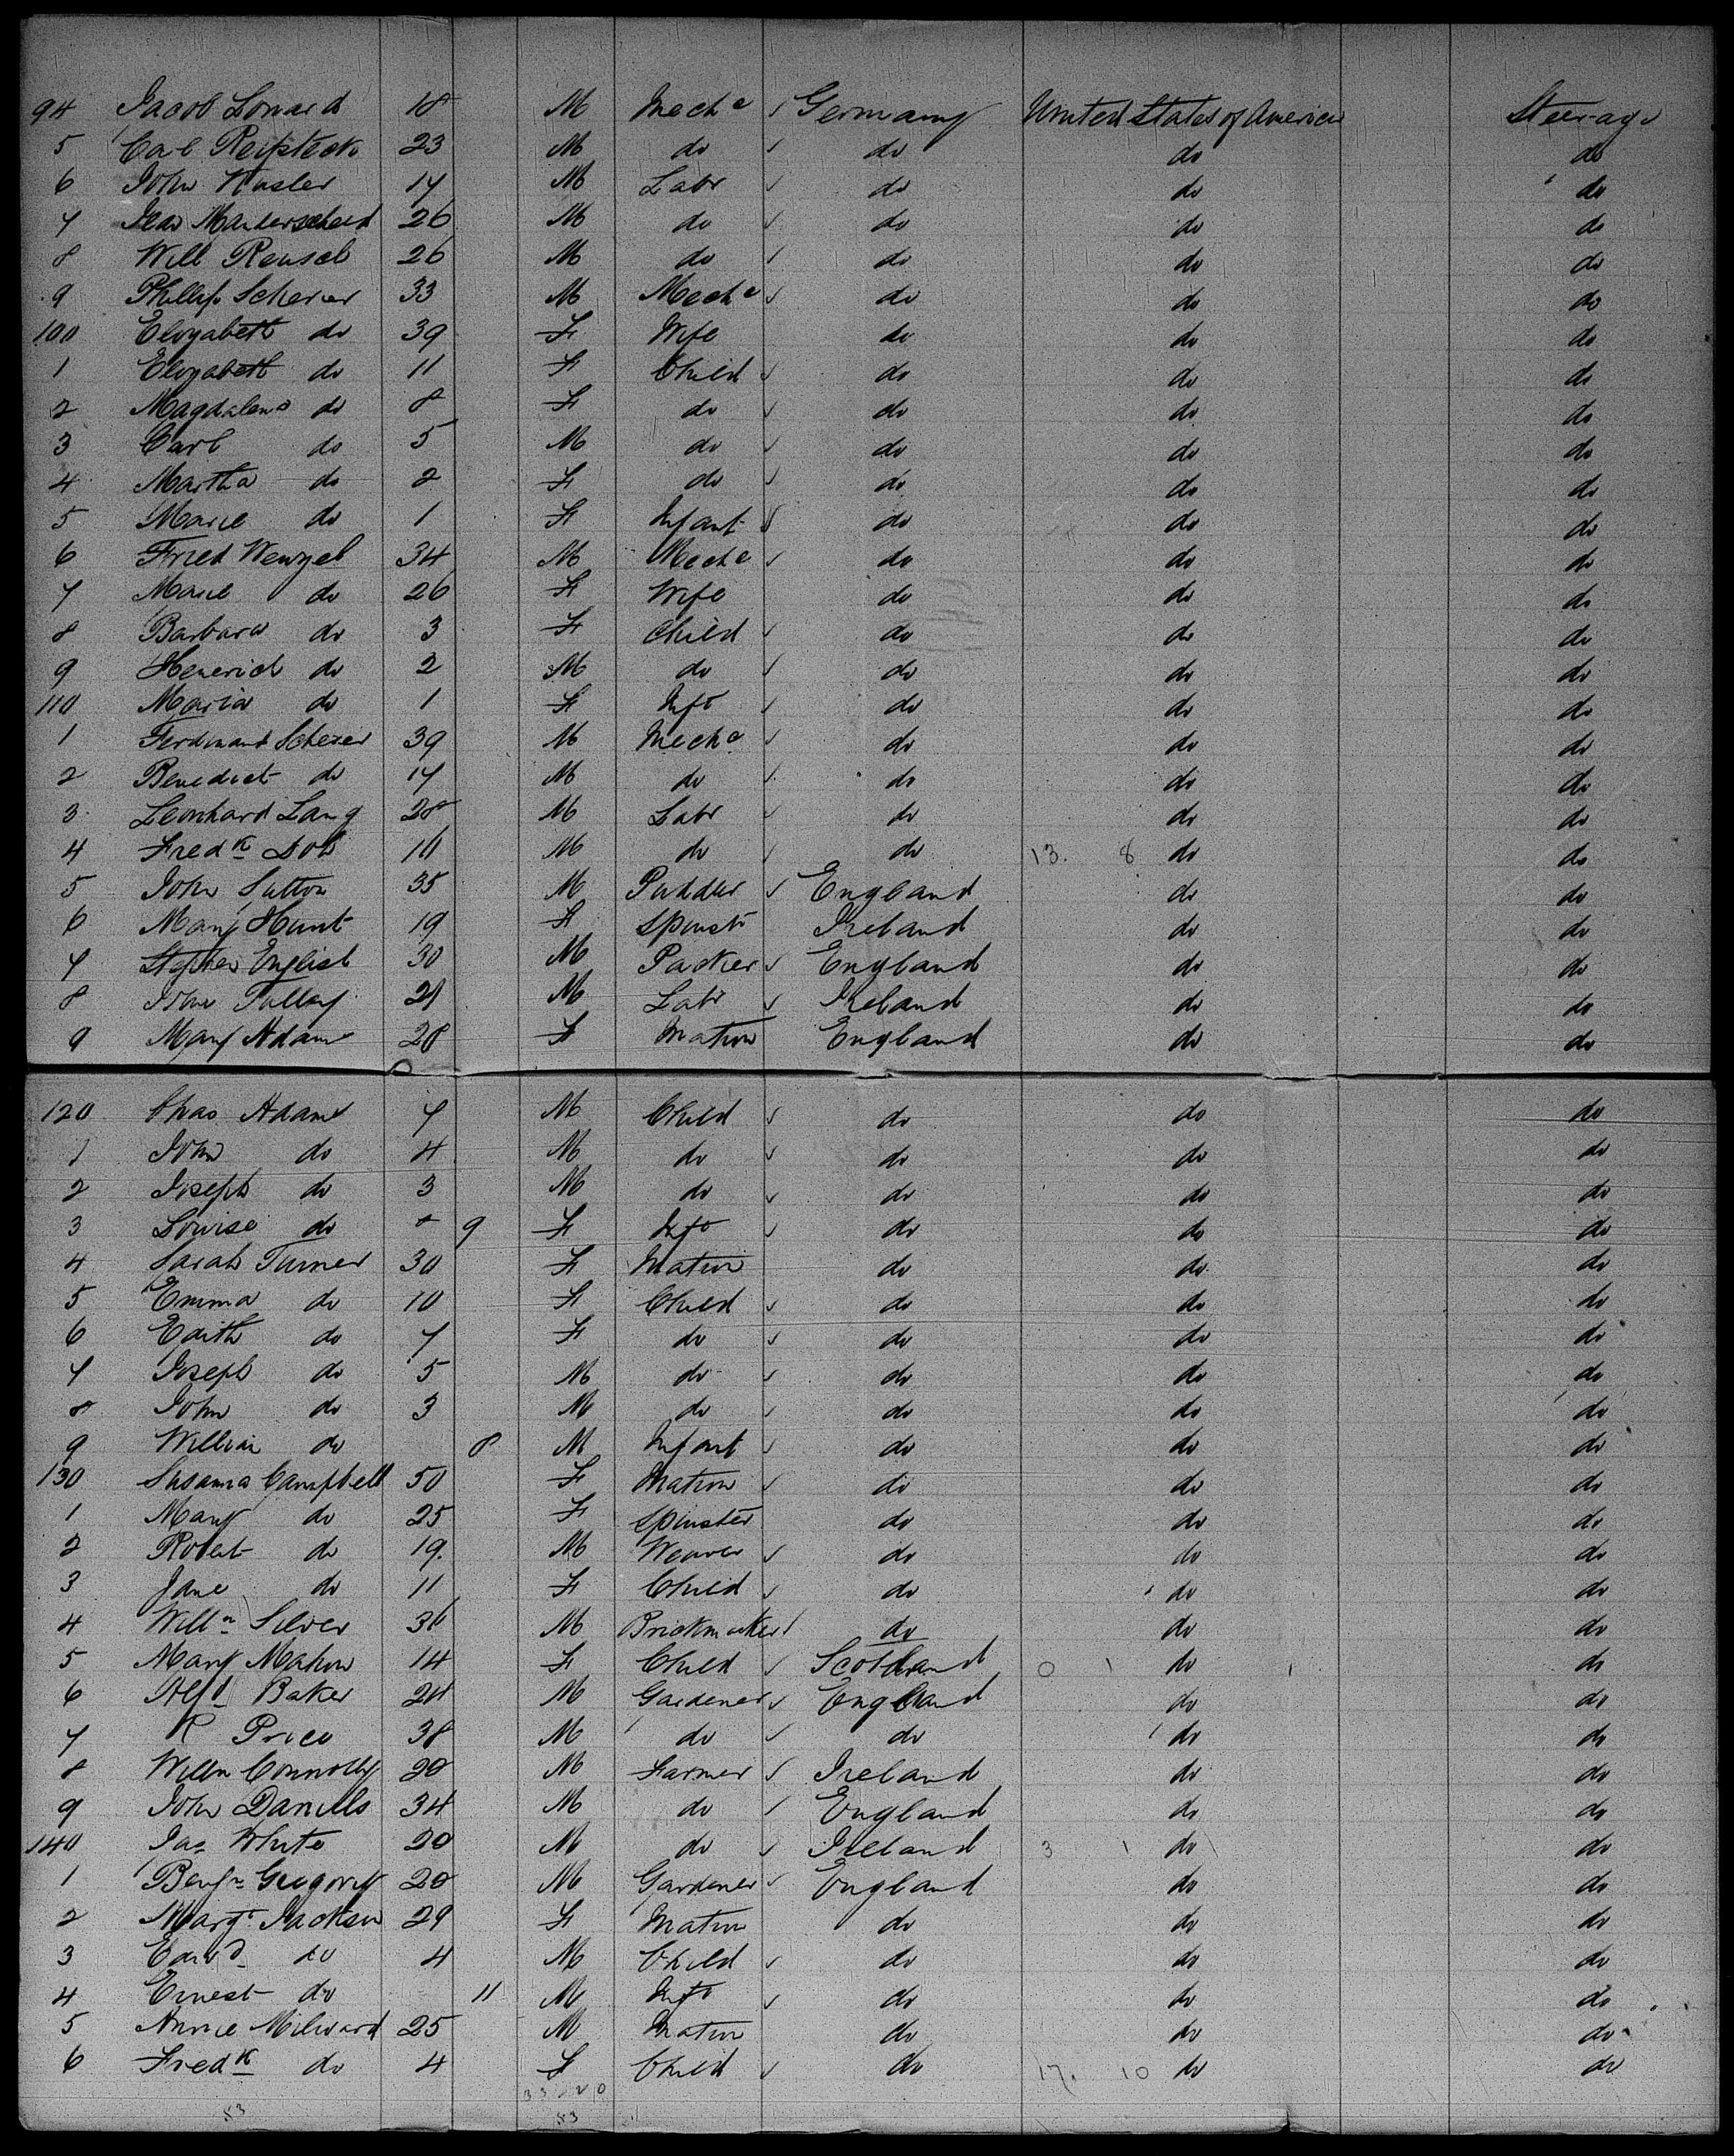 94 Jacob Lonard 18 M Mech c Germany United States of America Steerage
5 Carl 23 M do do do do
6 John Kusler 17 M Labr do do do
7 26 M do do do do
8 Will Reusch 26 M do do do do
9 Phillip Scherer 33 M Mech c do do do
100 Elizabeth do 39 F Wife do do do
1 Elizabeth do 11 F Child do do do
2 Magdalena do 8 F do do do do
3 Carl do 5 M do do do do
4 Martha do 2 F do do do do
5 Marie do 1 F Infant do do do
6 Fried Wenzel 34 M Mech c do do do
7 Marie do 26 F Wife do do do
8 Barbara do 3 F Child do do do
9 Heinrich do 2 M do do do do
110 Maria do 1 F Inft do do do
1 Ferdinand Scherer 39 M Mech c do do do
2 Benedict do 17 M do do do do
3 Leonhard Lang 28 M Labr do do do
4 Fredk M do do 13. 8 do do
5 John Sutton 35 M Puddler England do do
6 Mary Hunt 19 F Spinstr Ireland do do
7 Stephen English 30 M Packer England do do
8 John Talley 21 M Labr Ireland do do
9 Mary Adams 28 F Matron England do do
120 Chas Adams 7 M Child do do do
1 John do 4 M do do do do
2 Joseph do 3 M do do do do
3 Louise do 9 F Inft do do do
4 Sarah Turner 30 F Matron do do do
5 Emma do 10 F Child do do do
6 Edith do 7 F do do do do
7 Joseph do 5 M do do do do
8 John do 3 M do do do do
9 William do 8 M Infant do do do
130 Susanna Campbell 50 F Matron do do do
1 Mary do 25 F Spinster do do do
2 Robert do 19. M Weaver do do do
3 Jane do 11 F Child do do do
4 Willm Silver 36 M Brickmaker do do do
5 Mary Mahon 14 F Child Scotland 0 1 do do
6 Alfd Baker 24 M Gardener England do do
7 R Price 38 M do do do do
8 Willm Connolly 20 M Farmer Ireland do do
9 John Daniells 34 M do England do do
140 Jas White 20 M do Ireland 3 1 do do
1 Benjn Gregory 20 M Gardener England do do
2 Margt Jackson 29 F Matron do do do
3 Edwd do 4 M Child do do do
4 Ernest do 11 M Inft do do do
5 Annie Milward 25 M Matron do do do
6 Fredk do 4 F Child do 17. 10 do do
33 20
53 53